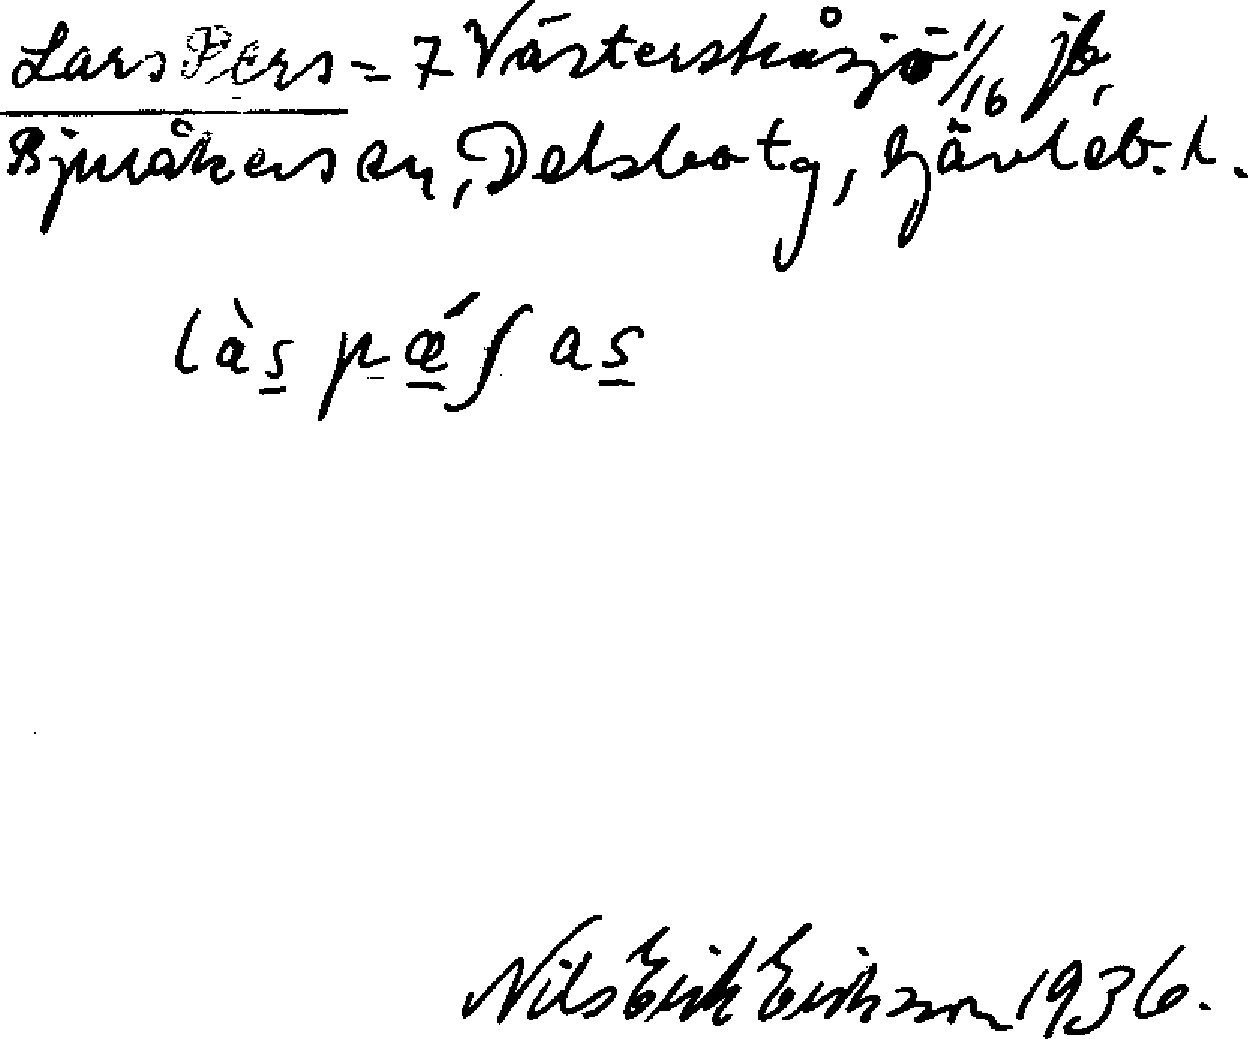 Lars Pers = 7 Västerstråsjö 1/16 jb,
Bjuråkers sn, Delsbo tg, Gävleb. l.
làs pǽʃ as
Nils Erik Eriksson 1936.